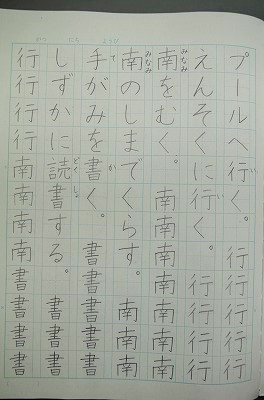 プールへ行く。行行行行行
えんそくに行く。行行行行
みなみ
南をむく。南南南南南南南
みなみ
南のしまでくらす。南南南
か
手がみを書く。書書書書書
どくしょ
しずかに読書する。書書書
行行行行南南南南書書書書